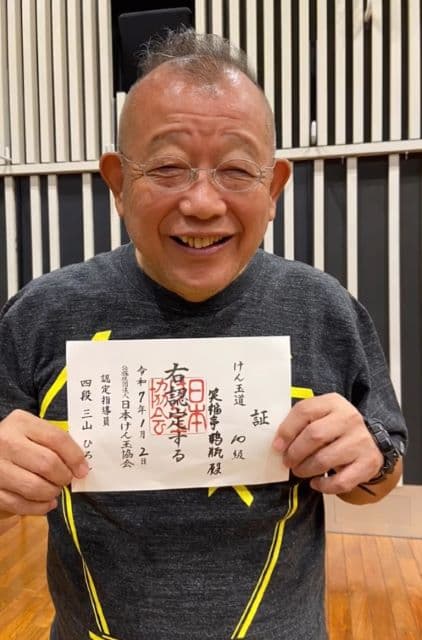 けん玉道 10級
証
笑福亭鶴瓶殿
右認定する
令和7年1月2日
公益社団法人日本けん玉協会
認定指導員
四段 三山ひろし
日本
協会